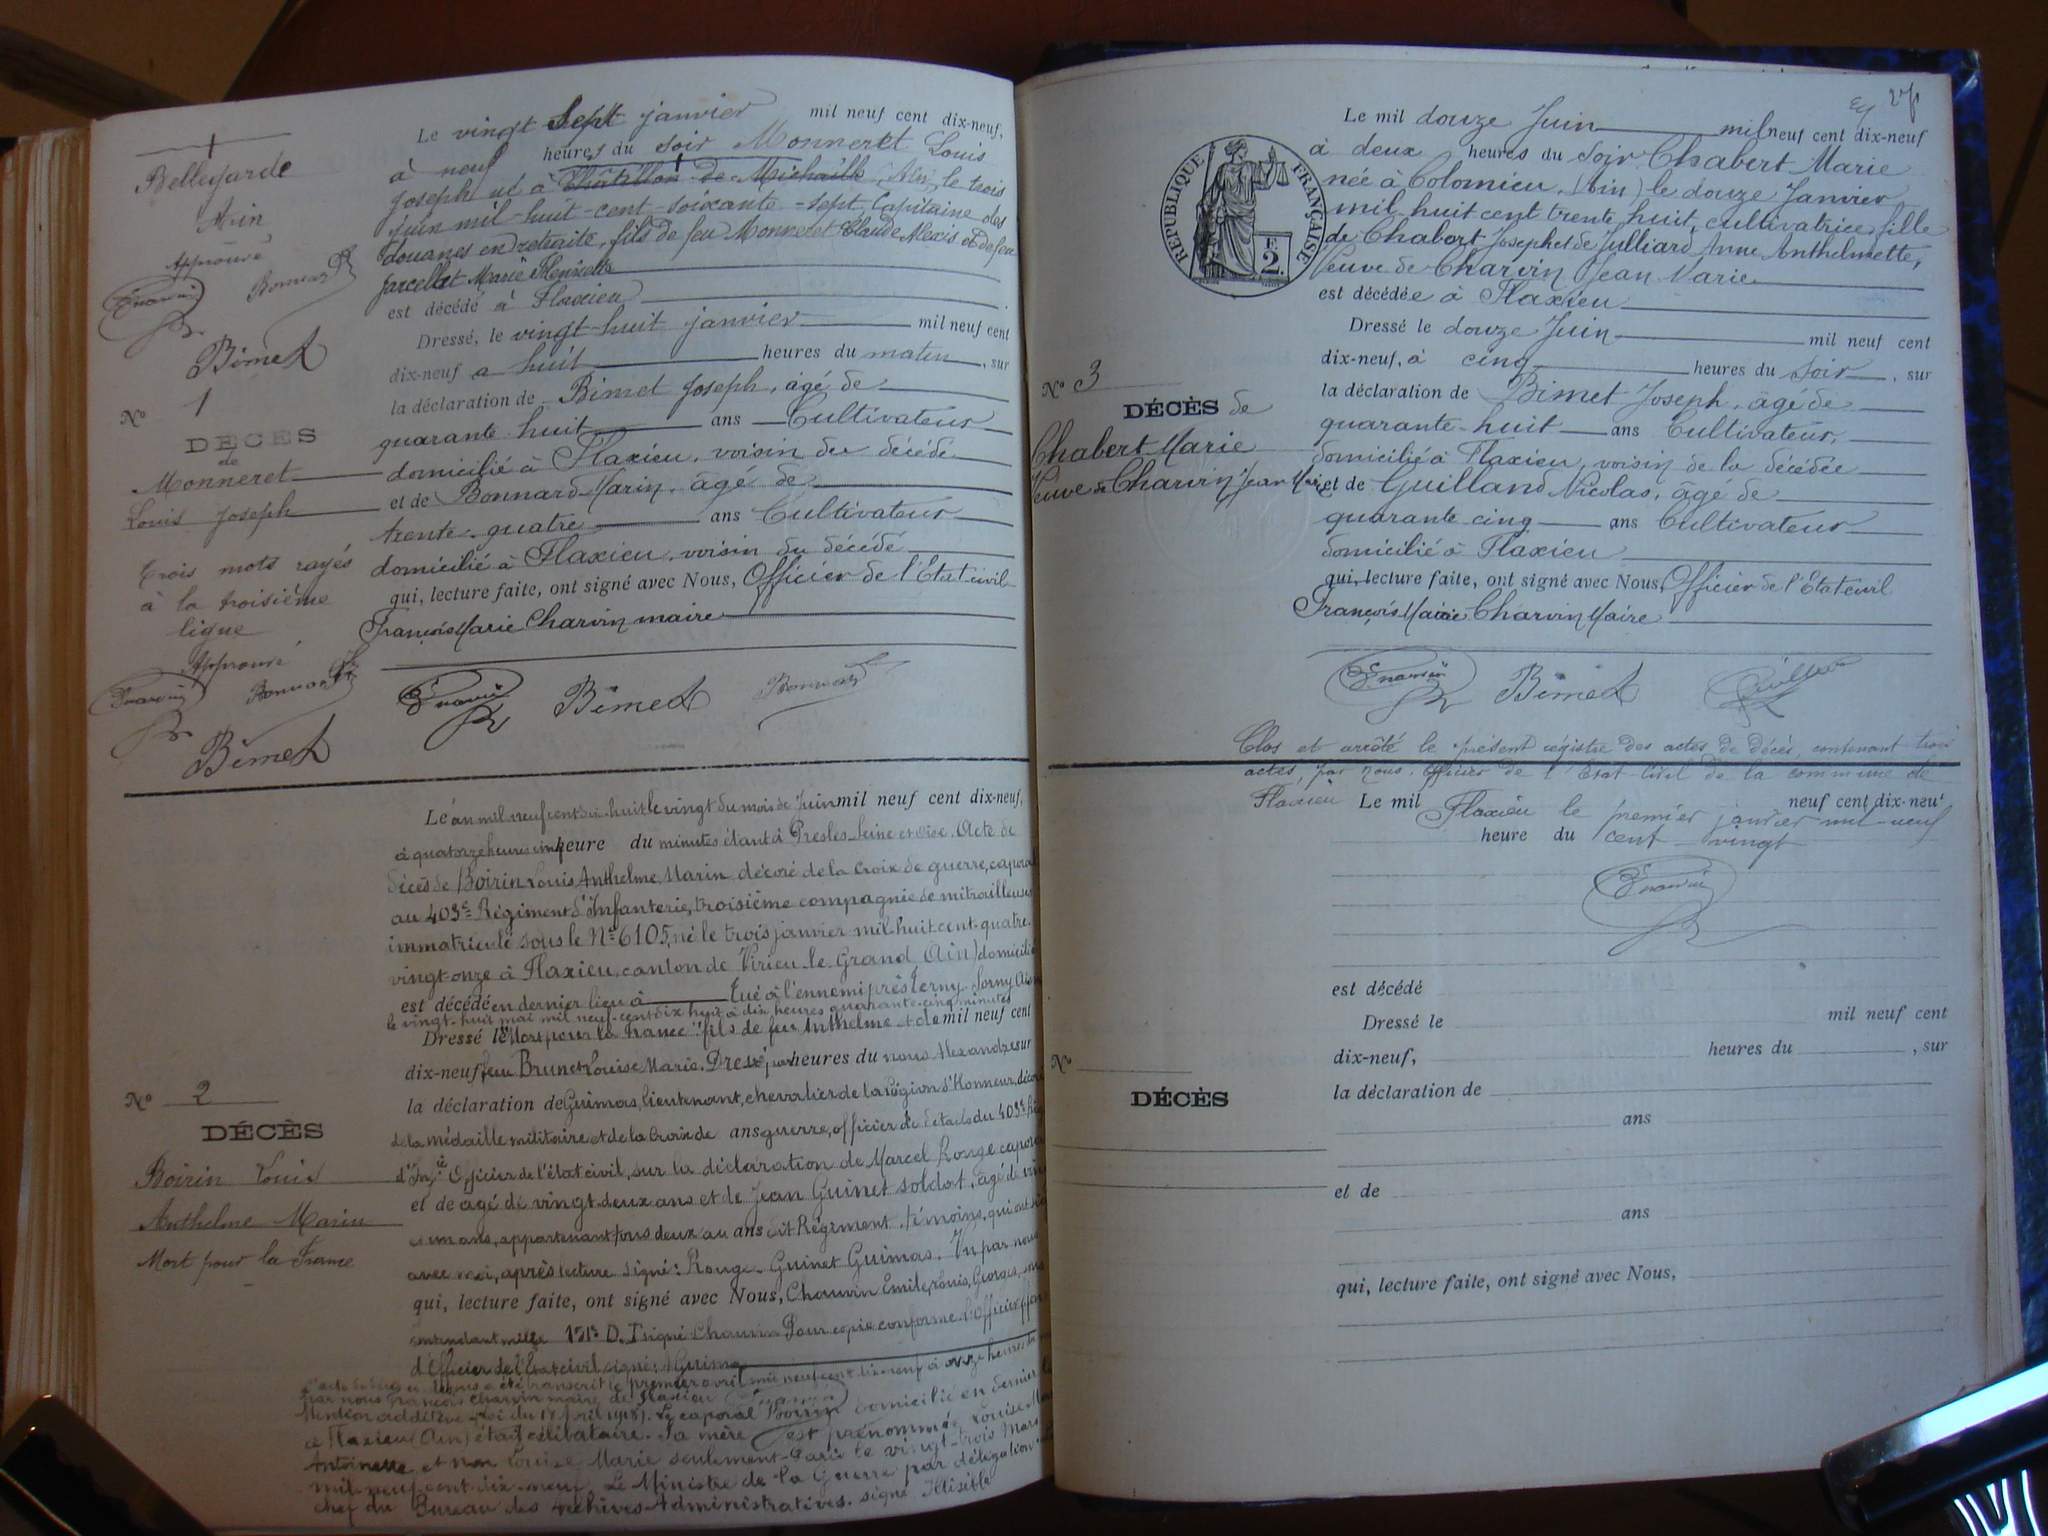 Bellegarde
Ain
Approuvé
Bonnard
Bimet
N° 1
DÉCÈS
de
Monneret
Louis Joseph
trois mots rayés
à la troisième
ligne
Approuvé
Bonnard
Bimet
Le vingt sept janvier mil neuf cent dix-neuf,
à neuf heures du soir Monneret Louis
Joseph né à Châtillon de Michaille, Ain, le trois
juin mil-huit-cent-soixante-sept, Capitaine des
douanes en retraite, fils de feu Monneret Claude Alexis et de feu
Marie
est décédé à Flaxieu
Dressé, le vingt-huit janvier mil neuf cent
dix-neuf a huit heures du matin, sur
la déclaration de Bimet Joseph, âgé de
quarante-huit ans Cultivateur
domicilié à Flaxieu, voisin du décédé
et de Bonnard Marin, âgé de
trente-quatre ans Cultivateur
domicilié à Flaxieu, voisin du décédé
qui, lecture faite, ont signé avec Nous, Officier de l'Etat civil
François Marie Charvin maire
Bimet Bonnard
N° 2
DÉCÈS
Boirin Louis
Anthelme Marin
Mort pour la France
L'an mil neuf cent dix-huit le vingt du mois de Juin mil neuf cent dix-neuf,
à quatorze heures cinq heure du minutes étant à Presles Seine et Oise. Acte de
décès de Boirin Louis Anthelme Marin décoré de la Croix de guerre, caporal
au 403e Régiment d'Infanterie, troisième compagnie de mitrailleuses
immatriculé sous le N° 6105, né le trois janvier mil-huit-cent-quatre-
vingt-onze à Flaxieu, canton de Virieu-le-Grand (Ain) domicilié
est décédé en dernier lieu à Tué à l'ennemi près Terny-Sorny
le vingt-huit mai mil neuf-cent dix huit à dix heures quarante-cinq minutes
Dressé le "Mort pour la France" fils de feu Anthelme et de mil neuf cent
dix-neuf, feu Brunet Louise Marie. Dressé par heures du nous Alexandre sur
la déclaration de Guimas, lieutenant, chevalier de la Légion d'Honneur, décoré
de la médaille militaire et de la Croix de ans guerre, officier de détails du 403e
d'Inf.ie Officier de l'état civil, sur la déclaration de Marcel Rouge caporal
et de âgé de vingt-deux ans et de Jean Guinet soldat, âgé de
un ans, appartenant tous deux au ans dit Régiment, témoins, qui ont
avec moi, après lecture signé: Rouge-Guinet Guimas. Vu par nous
qui, lecture faite, ont signé avec Nous, Chauvin Emile, Louis, Georges,
151e D. I signé Chauvin Pour copie conforme l'Officier
d'Officier de l'Etat civil signé: Guimas
L'acte a été transcrit le premier avril mil neuf cent dix-neuf à onze heures
par nous François Charvin maire de Flaxieu
Mention additive (Loi du 18 Avril 1918). Le caporal Boirin domicilié en dernier
à Flaxieu (Ain) était célibataire. Sa mère est prénommée Louise
Antoinette et non Louise Marie seulement. Paris le vingt-trois Mars
mil-neuf-cent-dix-neuf. Le Ministre de la Guerre par délégation
chef du Bureau des Archives Administratives. signé Illisible
27
RÉPUBLIQUE FRANÇAISE
2F.
N° 3
DÉCÈS de
Chabert Marie
Veuve de Charvin Jean Marie
Le mil douze Juin mil neuf cent dix-neuf
à deux heures du Soir Chabert Marie
née à Colomieu, (Ain) le douze Janvier
mil-huit cent trente huit, cultivatrice, fille
de Chabert Joseph et de Julliard Anne Anthelmette,
Veuve de Charvin Jean Marie
est décédée à Flaxieu
Dressé le douze Juin mil neuf cent
dix-neuf, à cinq heures du soir, sur
la déclaration de Bimet Joseph, âgé de
quarante-huit ans Cultivateur,
domicilié à Flaxieu, voisin de la décédée
et de Guilland Nicolas, âgé de
quarante cinq ans Cultivateur
domicilié à Flaxieu
qui, lecture faite, ont signé avec Nous, Officier de l'Etat civil
François Marie Charvin Maire
Bimet
Clos et arrêté le présent régistre des actes de décès, contenant trois
actes, par nous, Officier de l'Etat-Civil de la commune de
Flaxieu Le mil Flaxieu le premier janvier mil-neuf neuf cent dix-neuf
heure du cent vingt
est décédé
Dressé le mil neuf cent
dix-neuf, heures du , sur
N°
DÉCÈS
la déclaration de
ans
et de
ans
qui, lecture faite, ont signé avec Nous,